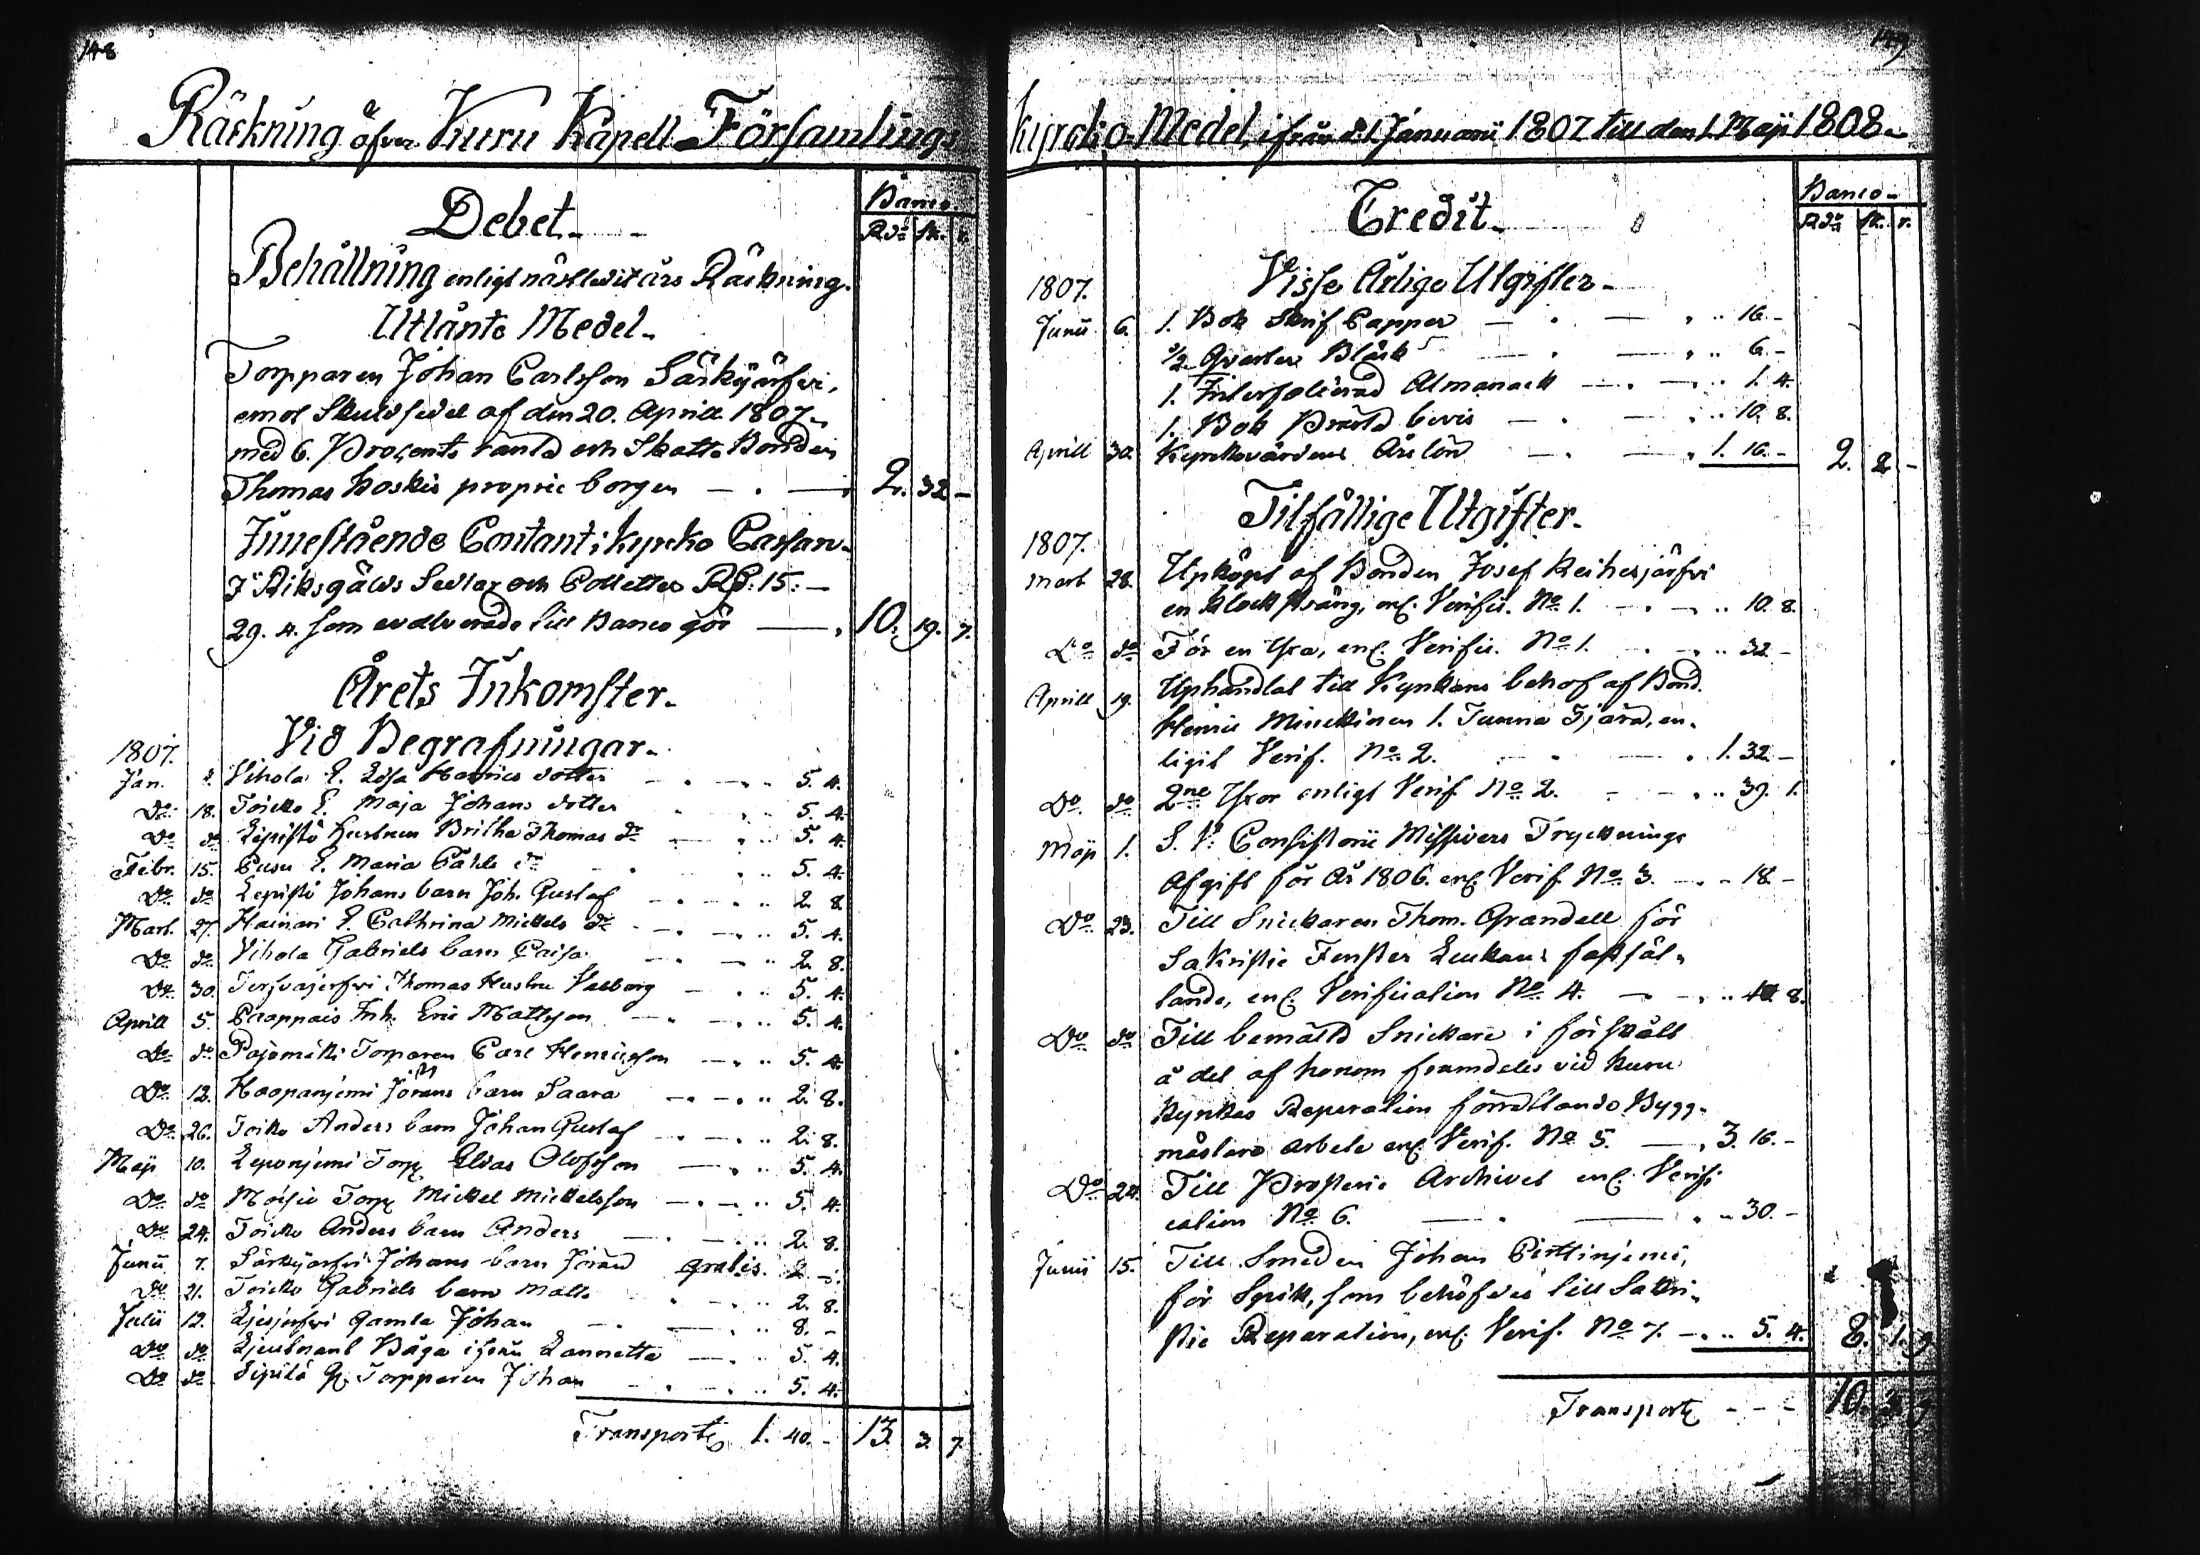 148
Räckning öfver Kuru Kapell Församlings
Debet
Banco
Rdr sk. r.
Behållning enligt nästledit års Räckning.
Utlånte Medel
Torpparen Johan Carlsson Särkijärfvi,
emot Skuldsedel af den 20. Aprill 1807
med 6. Procents ränta och Skatte Bonden
Thomas Koskis proprie borgen 2. 32 -
Innestående Contant i Kyrko Cassan
I Riksgälds Sedlar och Polletter Rd. 15. -
29. 4. som evalverade till Banco gör 10. 19. 7.
Årets Inkomster.
Vid Begrafningar.
1807.
Jan. Vihola E. Lisa Henrics dotter 5. 4.
Do 18. Toicko E. Maja Johans dotter 5. 4.
Do do Lepistö Hustrun Britha Thomas dr 5. 4.
Febr. 15. E. Maria dr 5. 4.
Do do Lepistö Johans barn Joh. Gustaf 2. 8.
Mart. 27. Hainari E. Cathrina Mickels dr 5. 4.
Do do Vihola Gabriels barn Caisa 2. 8.
Do 30. Thomas Hustru Valborg 5. 4.
Aprill 5. Inh. Eric Mattsson 5. 4.
Do do Pajamäki Torparen Carl Henricsson 5. 4.
Do 12. Haapaniemi Jörans barn Saara 2. 8.
Do 26. Toiko Anders barn Johan Gustaf 2. 8.
Maji 10. Leponjemi Torp. Elias Olofsson 5. 4.
Do do Moisio Torp. Mickel Mickelsson 5. 4.
Do 24. Toicko Anders barn Anders 2. 8.
Junii 7. Särkijärfvi Johans barn Jöran gratis. 2 -
Do 21. Toicko Gabriels barn Matts 2. 8.
Julii 12. gamla Johan 8. -
Do do Lieutnant Båga ifrån Lannetta 5. 4.
Do do Sipilä Torpparen Johan 5. 4.
Transport 1. 40. - 13. 3. 7.
149
Kyrcko-Medel, ifrån d. 1 Januarii 1807 till den 1. Maji 1808
Credit
Banco
Rdr sk. r.
Visse Årlige Utgifter
1807.
Junii 6. 1. Bok Skrif Papper 16. -
1/2 Qvarter Bläck 6. -
1. Interfolierad Almanack 1. 4.
1. Bok bevis 10. 8.
Aprill 30. Kyrkovärdens Årslön 1. 16. - 2. 2 -
Tilfällige Utgifter.
1807.
Mart 28. Upköpt af Bonden Josef Keihesjärfvi
en Klocksträng, enl. Verific. No 1. 10. 8.
Do do För en Yxa, enl. Verific. No 1. 32 -
Aprill 19. Uphandlat till Kyrkans behof af Bond.
Henric Minckinen 1. Tunna Tjära, en-
ligit Verif. No 2. 1. 32 -
Do do 2ne Yxor enligt Verif No 2. 39. 1.
Maji 1. S. V. Consistorii Missivers Trycknings
Afgift för År 1806. enl. Verif No 3. 18 -
Do 23. Till Snickaren Thom. Grandell för
Sakristie Fenster Luckans fastsät-
tande, enl. Verification No 4. 8.
Do do Till bemälte Snickare i förskått
å det af honom framdeles vid Kuru
Kyrkas Reparation förrättande Bygg-
mästare arbete enl. Verif. No 5. 3. 16. -
Do 24. Till Prosterie Archivet enl. Verifi
cation No 6. 30. -
Junii 15. Till Smeden Johan
för Spik, som behöfdes till Sakri-
stie Reparation, enl. Verif. No 7. 5. 4. 8. 1. 9
Transport 10.